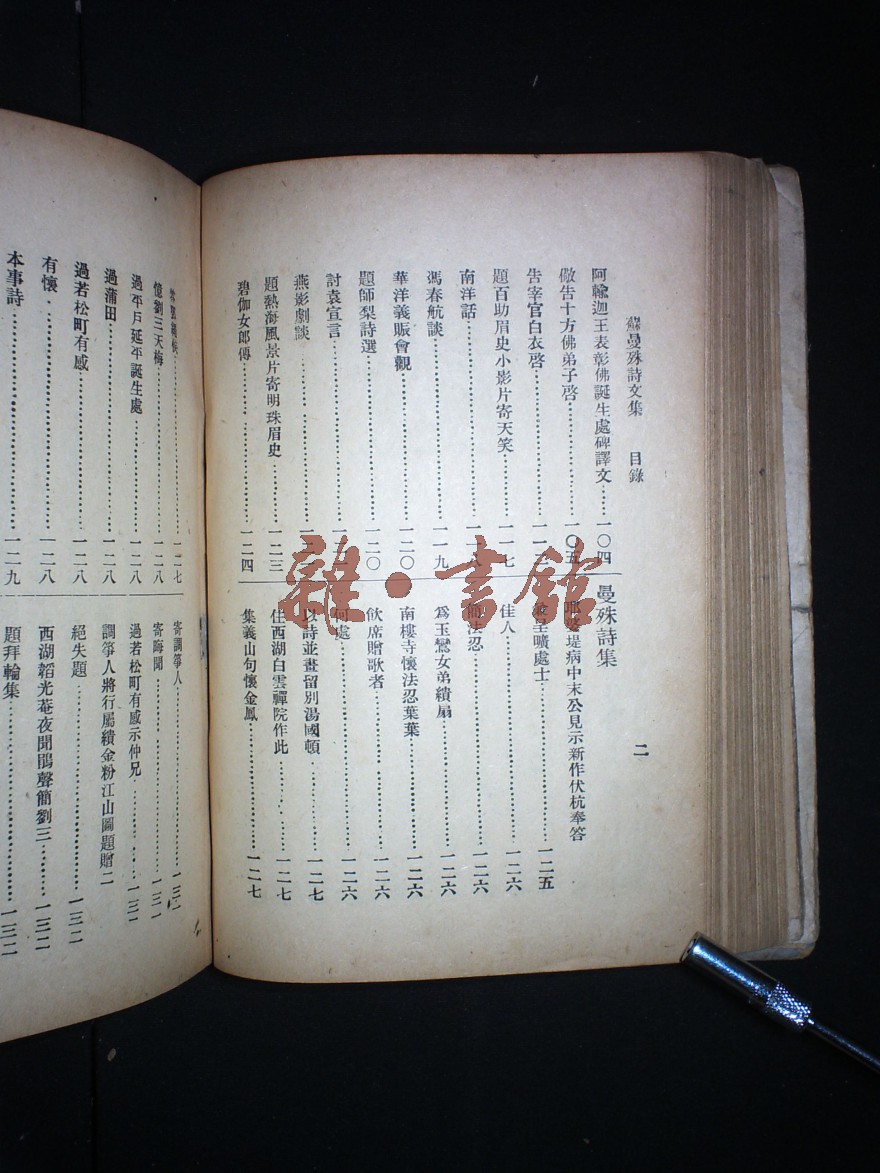 蘇曼殊詩文集 目錄 二
阿輸迦王表彰佛誕生處碑譯文……一〇四
儆告十方佛弟子啓……一〇五
告宰官白衣啓……一一
題百助眉史小影片寄天笑……一一七
南洋話……一一
馮春航談……一一九
華洋義賑會觀……一二〇
題師梨詩選……一二〇
討袁宣言……一
燕影劇談……一
題熱海風景片寄明珠眉史……一二三
碧伽女郎傳……一二四
曼殊詩集
堤病中末公見示新作伏枕奉答
呈曠處士……一二五
佳人……一二六
簡法忍……一二六
爲玉鸞女弟繢扇……一二六
南樓寺懷法忍葉葉……一二六
飲席贈歌者……一二六
何處……一二六
以詩並畫留別湯國頓……一二七
住西湖白雲禪院作此……一二七
集義山句懷金鳳……一二七
……一二七
憶劉三天梅……一二八
過平戶延平誕生處……一二八
過蒲田……一二八
過若松町有感……一二八
有懷……一二八
本事詩……一二九
寄調箏人……一三一
寄晦聞……一三一
過若松町有感示仲兄……一三一
調箏人將行屬繢金粉江山圖題贈二
絕失題……一三二
西湖韜光菴夜聞鵑聲簡劉三……一三二
題拜輪集……一三二
雜·書館